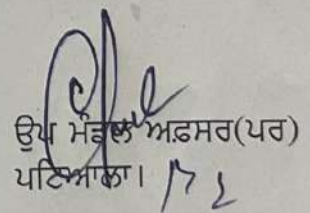 ਉਪ ਮੰਡਲ ਅਫ਼ਸਰ(ਪਰ)
ਪਟਿਆਲਾ।